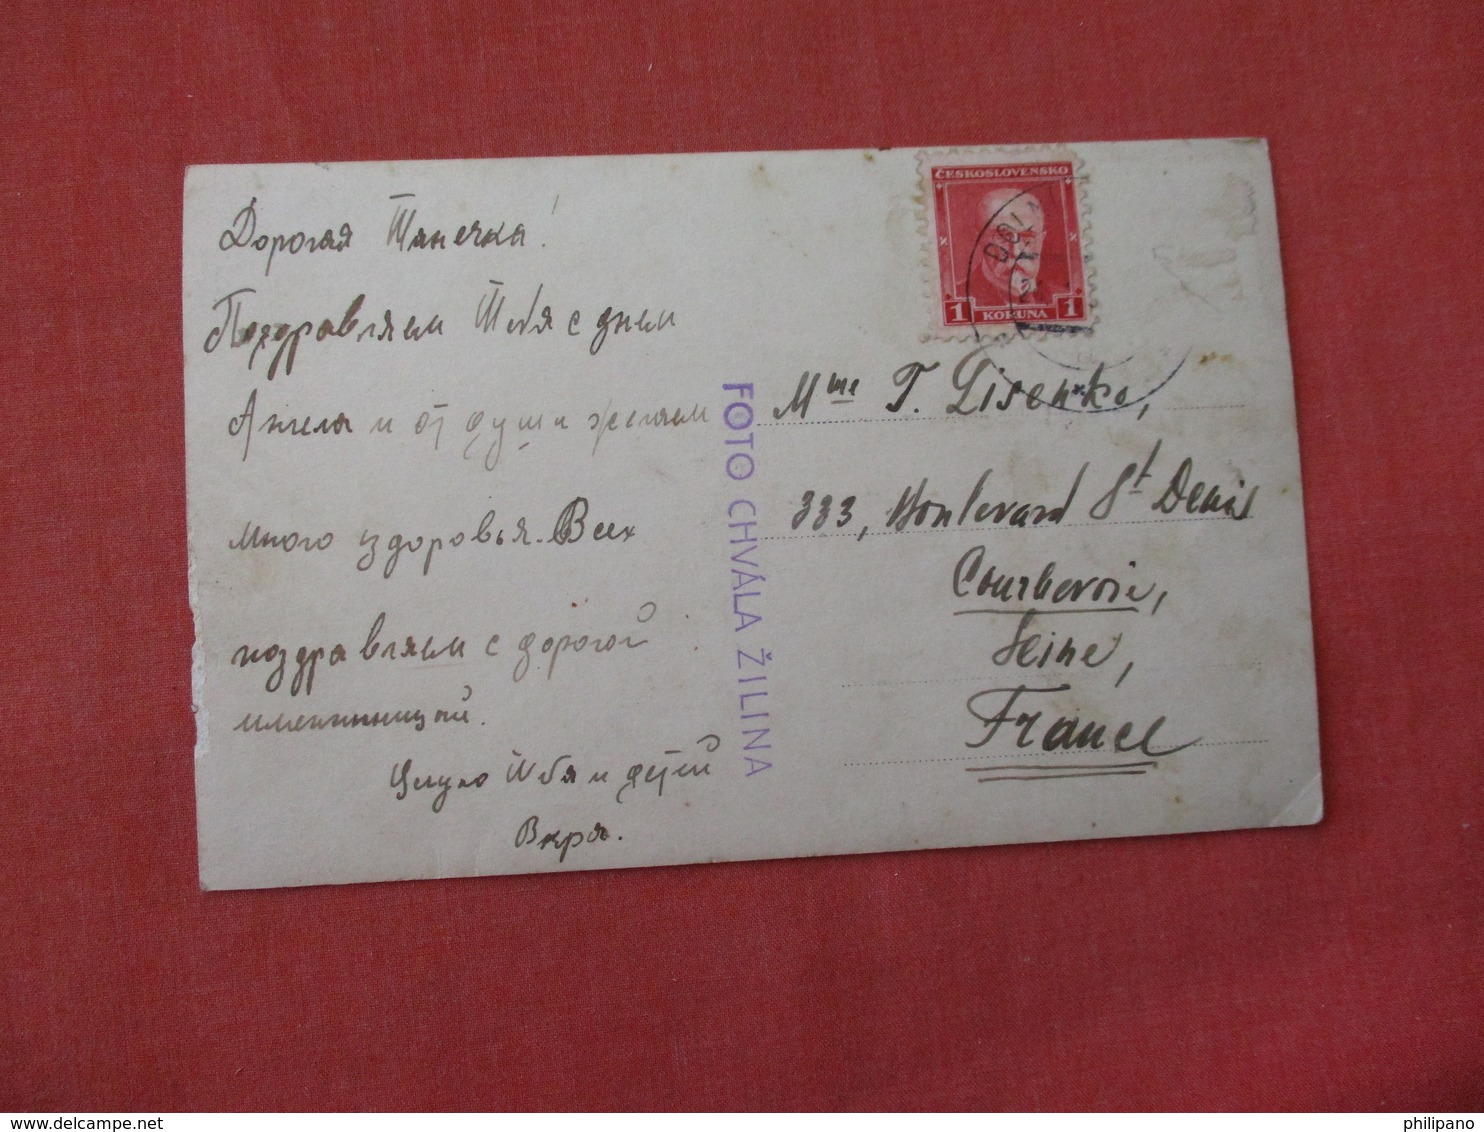 Дорогая Танечка!
Поздравляем Тебя с днем
Ангела и от души желаем
много здоровья. Всех
поздравляем с дорогой
именинницей.
Целую Тебя и детей
Вера.
FOTO CHVÁLA ŽILINA
ČESKOSLOVENSKO
1 KORUNA 1
Mme T. Lisenko,
333, Boulevard St Denis
Courbevoie,
Seine,
France
philipano